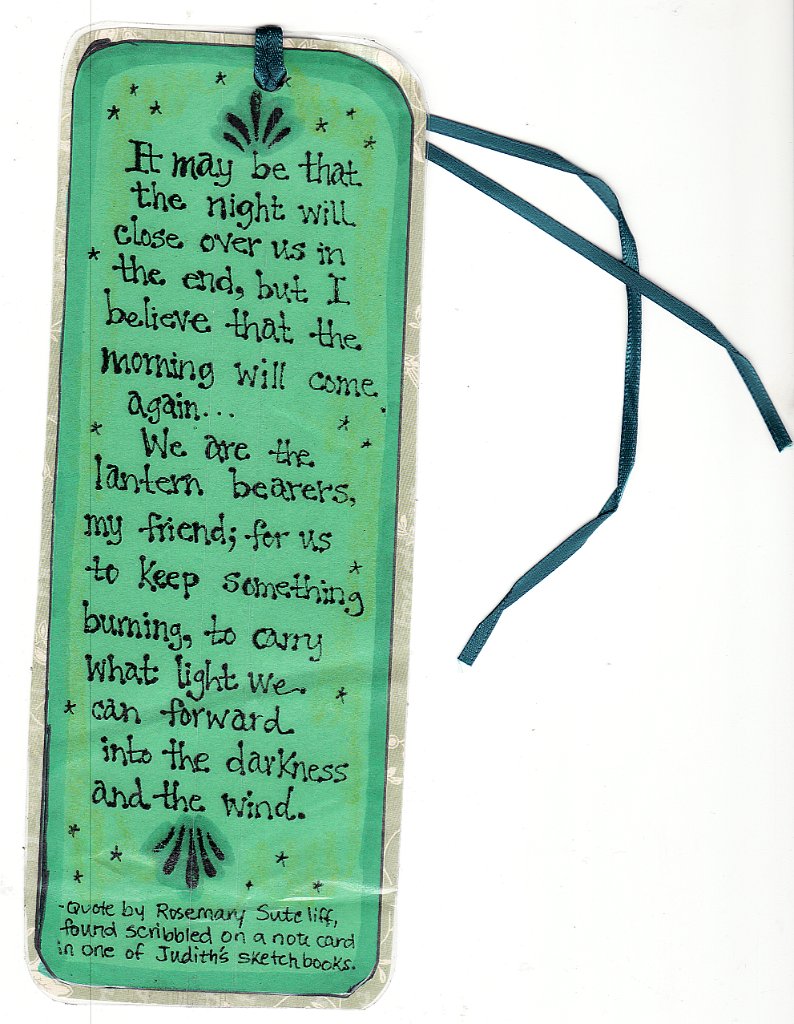 It may be that
the night will
close over us in
the end, but I
believe that the
morning will come
again...
We are the
lantern bearers,
my friend; for us
to keep something
burning, to carry
what light we
can forward
into the darkness
and the wind.
-Quote by Rosemary Sutcliff,
found scribbled on a note card
in one of Judith's sketchbooks.